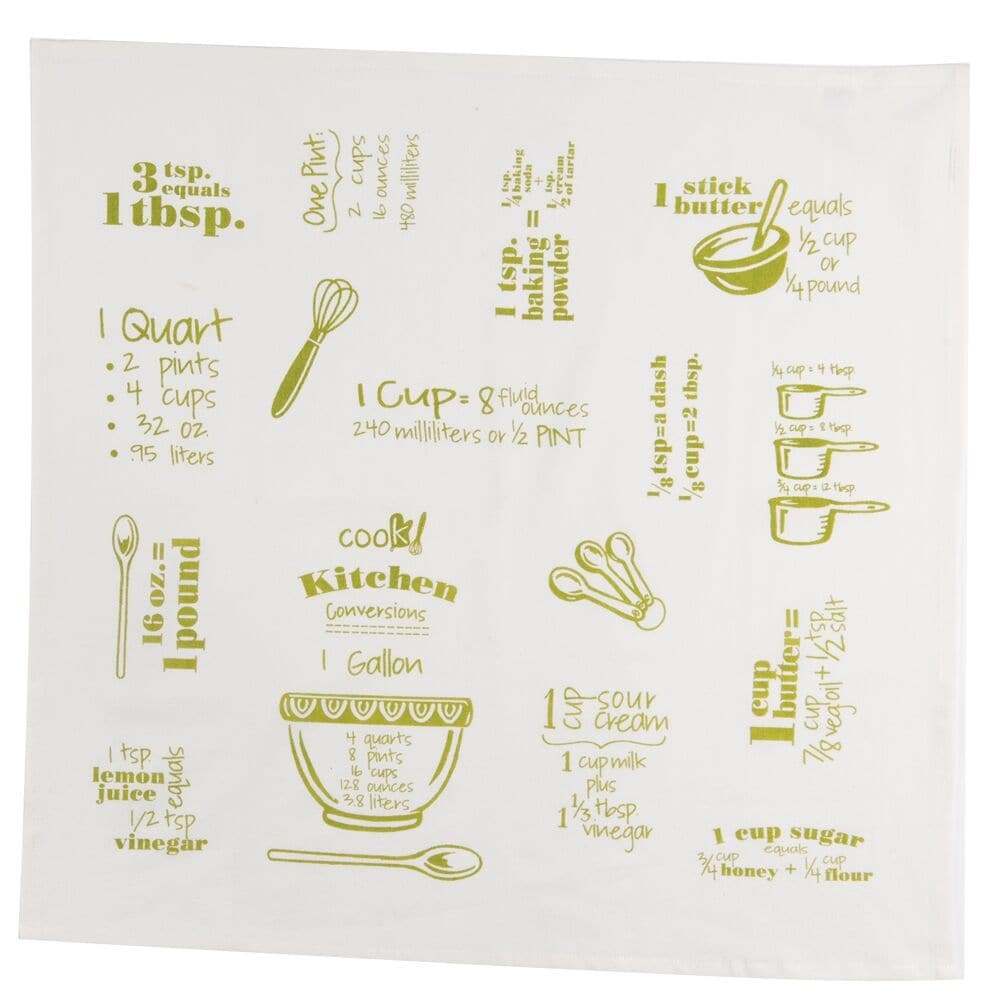 3 tsp.
equals
1 tbsp.
One Pint:
2 cups
16 ounces
480 milliliters
1 tsp.
baking
powder
=
1/4 tsp.
baking
soda
+
1/2 tsp.
cream
of tartar
1 stick
butter
equals
1/2 cup
or
1/4 pound
1 Quart
• 2 pints
• 4 cups
• 32 oz.
• .95 liters
1 Cup = 8 fluid
ounces
240 milliliters or 1/2 PINT
1/8 tsp=a dash
1/8 cup=2 tbsp.
1/4 cup = 4 tbsp.
1/2 cup = 8 tbsp.
3/4 cup = 12 tbsp.
16 oz.=
1 pound
cook
Kitchen
Conversions
1 Gallon
4 quarts
8 pints
16 cups
128 ounces
3.8 liters
1 cup
butter=
7/8 cup
veg oil + 1/2 tsp
salt
1 cup sour
cream
1 cup milk
plus
1 1/3 tbsp.
vinegar
1 tsp.
lemon
juice
equals
1/2 tsp
vinegar
1 cup sugar
equals
3/4 cup
honey + 1/4 cup
flour